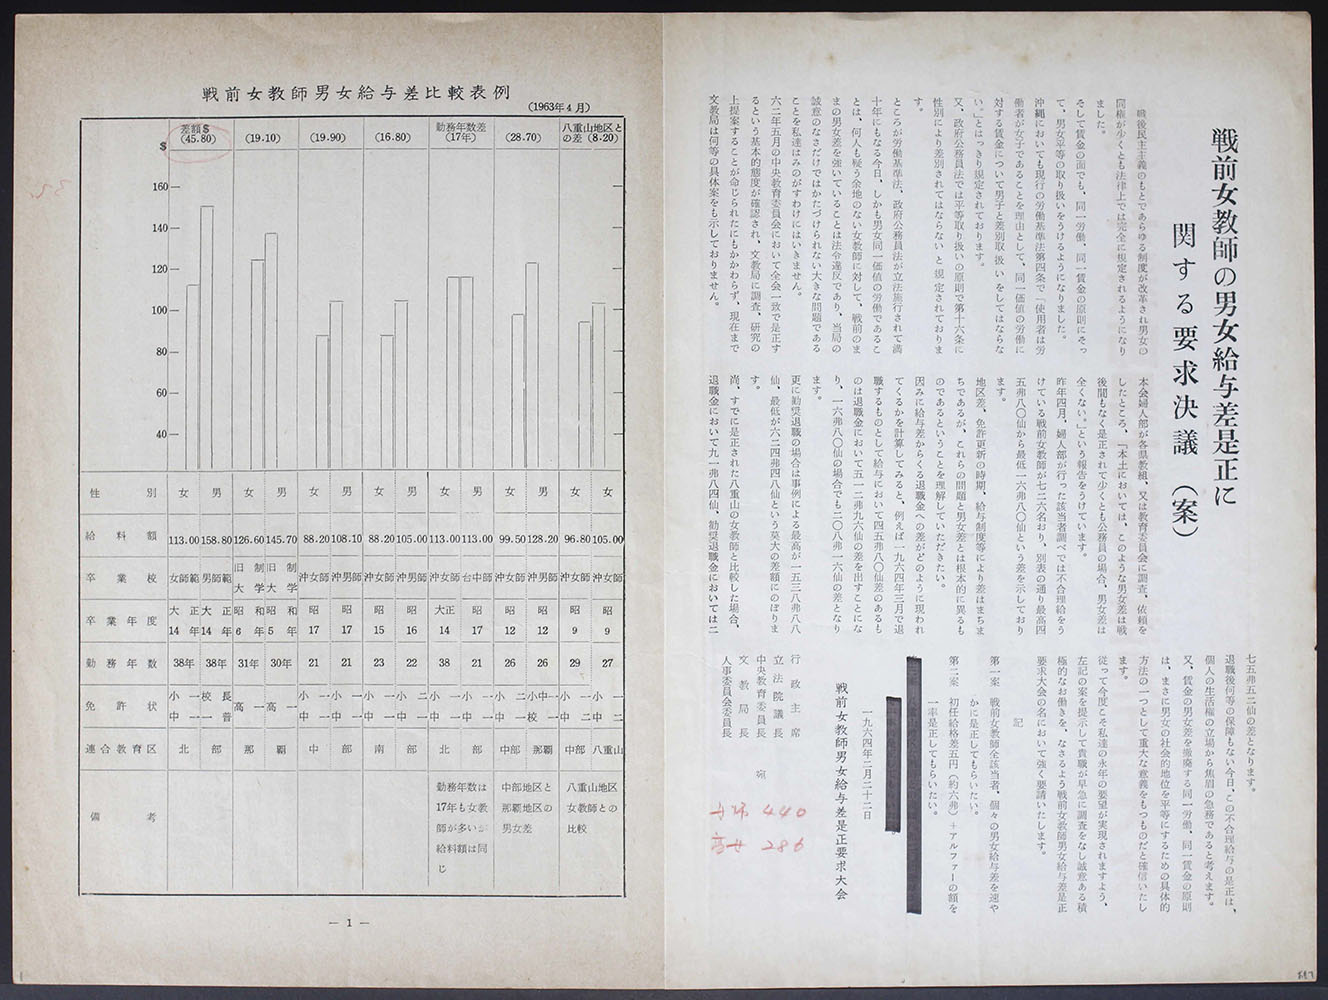 戦前女教師の男女給与差是正に
関する要求決議(案)
戦後民主主義のもとであらゆる制度が改革され男女の
同権が少くとも法律上では完全に規定されるようになり
ました。
そして賃金の面でも、同一労働、同一賃金の原則にそっ
て、男女平等の取り扱いをうけるようになりました。
沖縄においても現行の労働基準法第四条で「使用者は労
働者が女子であることを理由として、同一価値の労働に
対する賃金について男子と差別取扱いをしてはならな
い。」とはっきり規定されております。
又、政府公務員法では平等取り扱いの原則で第十六条に
性別により差別されてはならないと規定されておりま
す。
ところが労働基準法、政府公務員法が立法施行されて満
十年にもなる今日、しかも男女同一価値の労働であるこ
とは、何人も疑う余地のない女教師に対して、戦前のま
まの男女差を強いていることは法令違反であり、当局の
誠意のなさだけではかたづけられない大きな問題である
ことを私達はみのがすわけにはいきません。
六二年五月の中央教育委員会において全会一致で是正す
るという基本的態度が確認され、文教局に調査、研究の
上提案することが命じられたにもかかわらず、現在まで
文教局は何等の具体案をも示しておりません。
本会婦人部が各県教組、又は教育委員会に調査、依頼を
したところ、「本土においては、このような男女差は戦
後間もなく是正されて少くとも公務員の場合、男女差は
全くない。」という報告をうけています。
昨年四月、婦人部が行った該当者調べでは不合理給をう
けている戦前女教師が七二六名おり、別表の通り最高四
五弗八〇仙から最低一六弗八〇仙という差を示しており
ます。
地区差、免許更新の時期、給与制度等により差はまちま
ちであるが、これらの問題と男女差とは根本的に異るも
のであるということを理解していただきたい。
因みに給与差からくる退職金への差がどのように現われ
てくるかを計算してみると、例えば一九六四年三月で退
職するものとして給与において四五弗八〇仙差のあるも
のは退職金において五一二弗九六仙の差を出すことにな
り、一六弗八〇仙の場合でも二〇八弗一六仙の差となり
ます。
更に勧奨退職の場合は事例による最高が一五三八弗八八
仙、最低が六二四弗四八仙という莫大の差額にのぼりま
す。
尚、すでに是正された八重山の女教師と比較した場合、
退職金において九一弗八四仙、勧奨退職金においては二
七五弗五二仙の差となります。
退職後何等の保障もない今日、この不合理給与の是正は、
個人の生活権の立場から焦眉の急務であると考えます。
又、賃金の男女差を撤廃する同一労働、同一賃金の原則
は、まさに男女の社会的地位を平等にするための具体的
方法の一つとして重大な意義をもつものだと確信いたし
ます。
従って今度こそ私達の永年の要望が実現されますよう、
左記の案を提示して貴職が早急に調査をなし誠意ある積
極的なお働きを、なさるよう戦前女教師男女給与差是正
要求大会の名において強く要請いたします。
記
第一案 戦前女教師全該当者、個々の男女給与差を速や
かに是正してもらいたい。
第二案 初任給格差五円(約六弗)+アルファーの額を
一率是正してもらいたい。
一九六四年二月二十二日
戦前女教師男女給与差是正要求大会
行政主席
立法院議長
中央教育委員長 宛
文教局長
人事委員会委員長
440
286
戦前女教師男女給与差比較表例
(1963年4月)
差額$ (45.80) (19.10) (19.90) (16.80) 勤務年数差(17年) (28.70) 八重山地区との差(8.20)
$
160
140
120
100
80
60
40
性別 女 男 女 男 女 男 女 男 女 男 女 男 女 女
給料額 113.00 158.80 126.60 145.70 88.20 108.10 88.20 105.00 113.00 113.00 99.50 128.20 96.80 105.00
卒業校 女師範 男師範 旧制大学 旧制大学 沖女師 沖男師 沖女師 沖男師 沖女師 台中師 沖女師 沖男師 沖女師 沖女師
卒業年度 大正14年 大正14年 昭和6年 昭和5年 昭17 昭17 昭15 昭16 大正14 昭17 昭12 昭12 昭9 昭9
勤務年数 38年 38年 31年 30年 21 21 23 22 38 21 26 26 29 27
免許状 小一中一 校長一普 高一 高一 小一中一 小一中一 小一中一 小二中一 小一中一 小一中一 小二中一 小中一校一 小一中二 小一中二
連合教育区 北部 那覇 中部 南部 北部 中部 那覇 中部 八重山
備考
勤務年数は
17年も女教
師が多いが
給料額は同
じ
中部地区と
那覇地区の
男女差
八重山地区
女教師との
比較
— 1 —